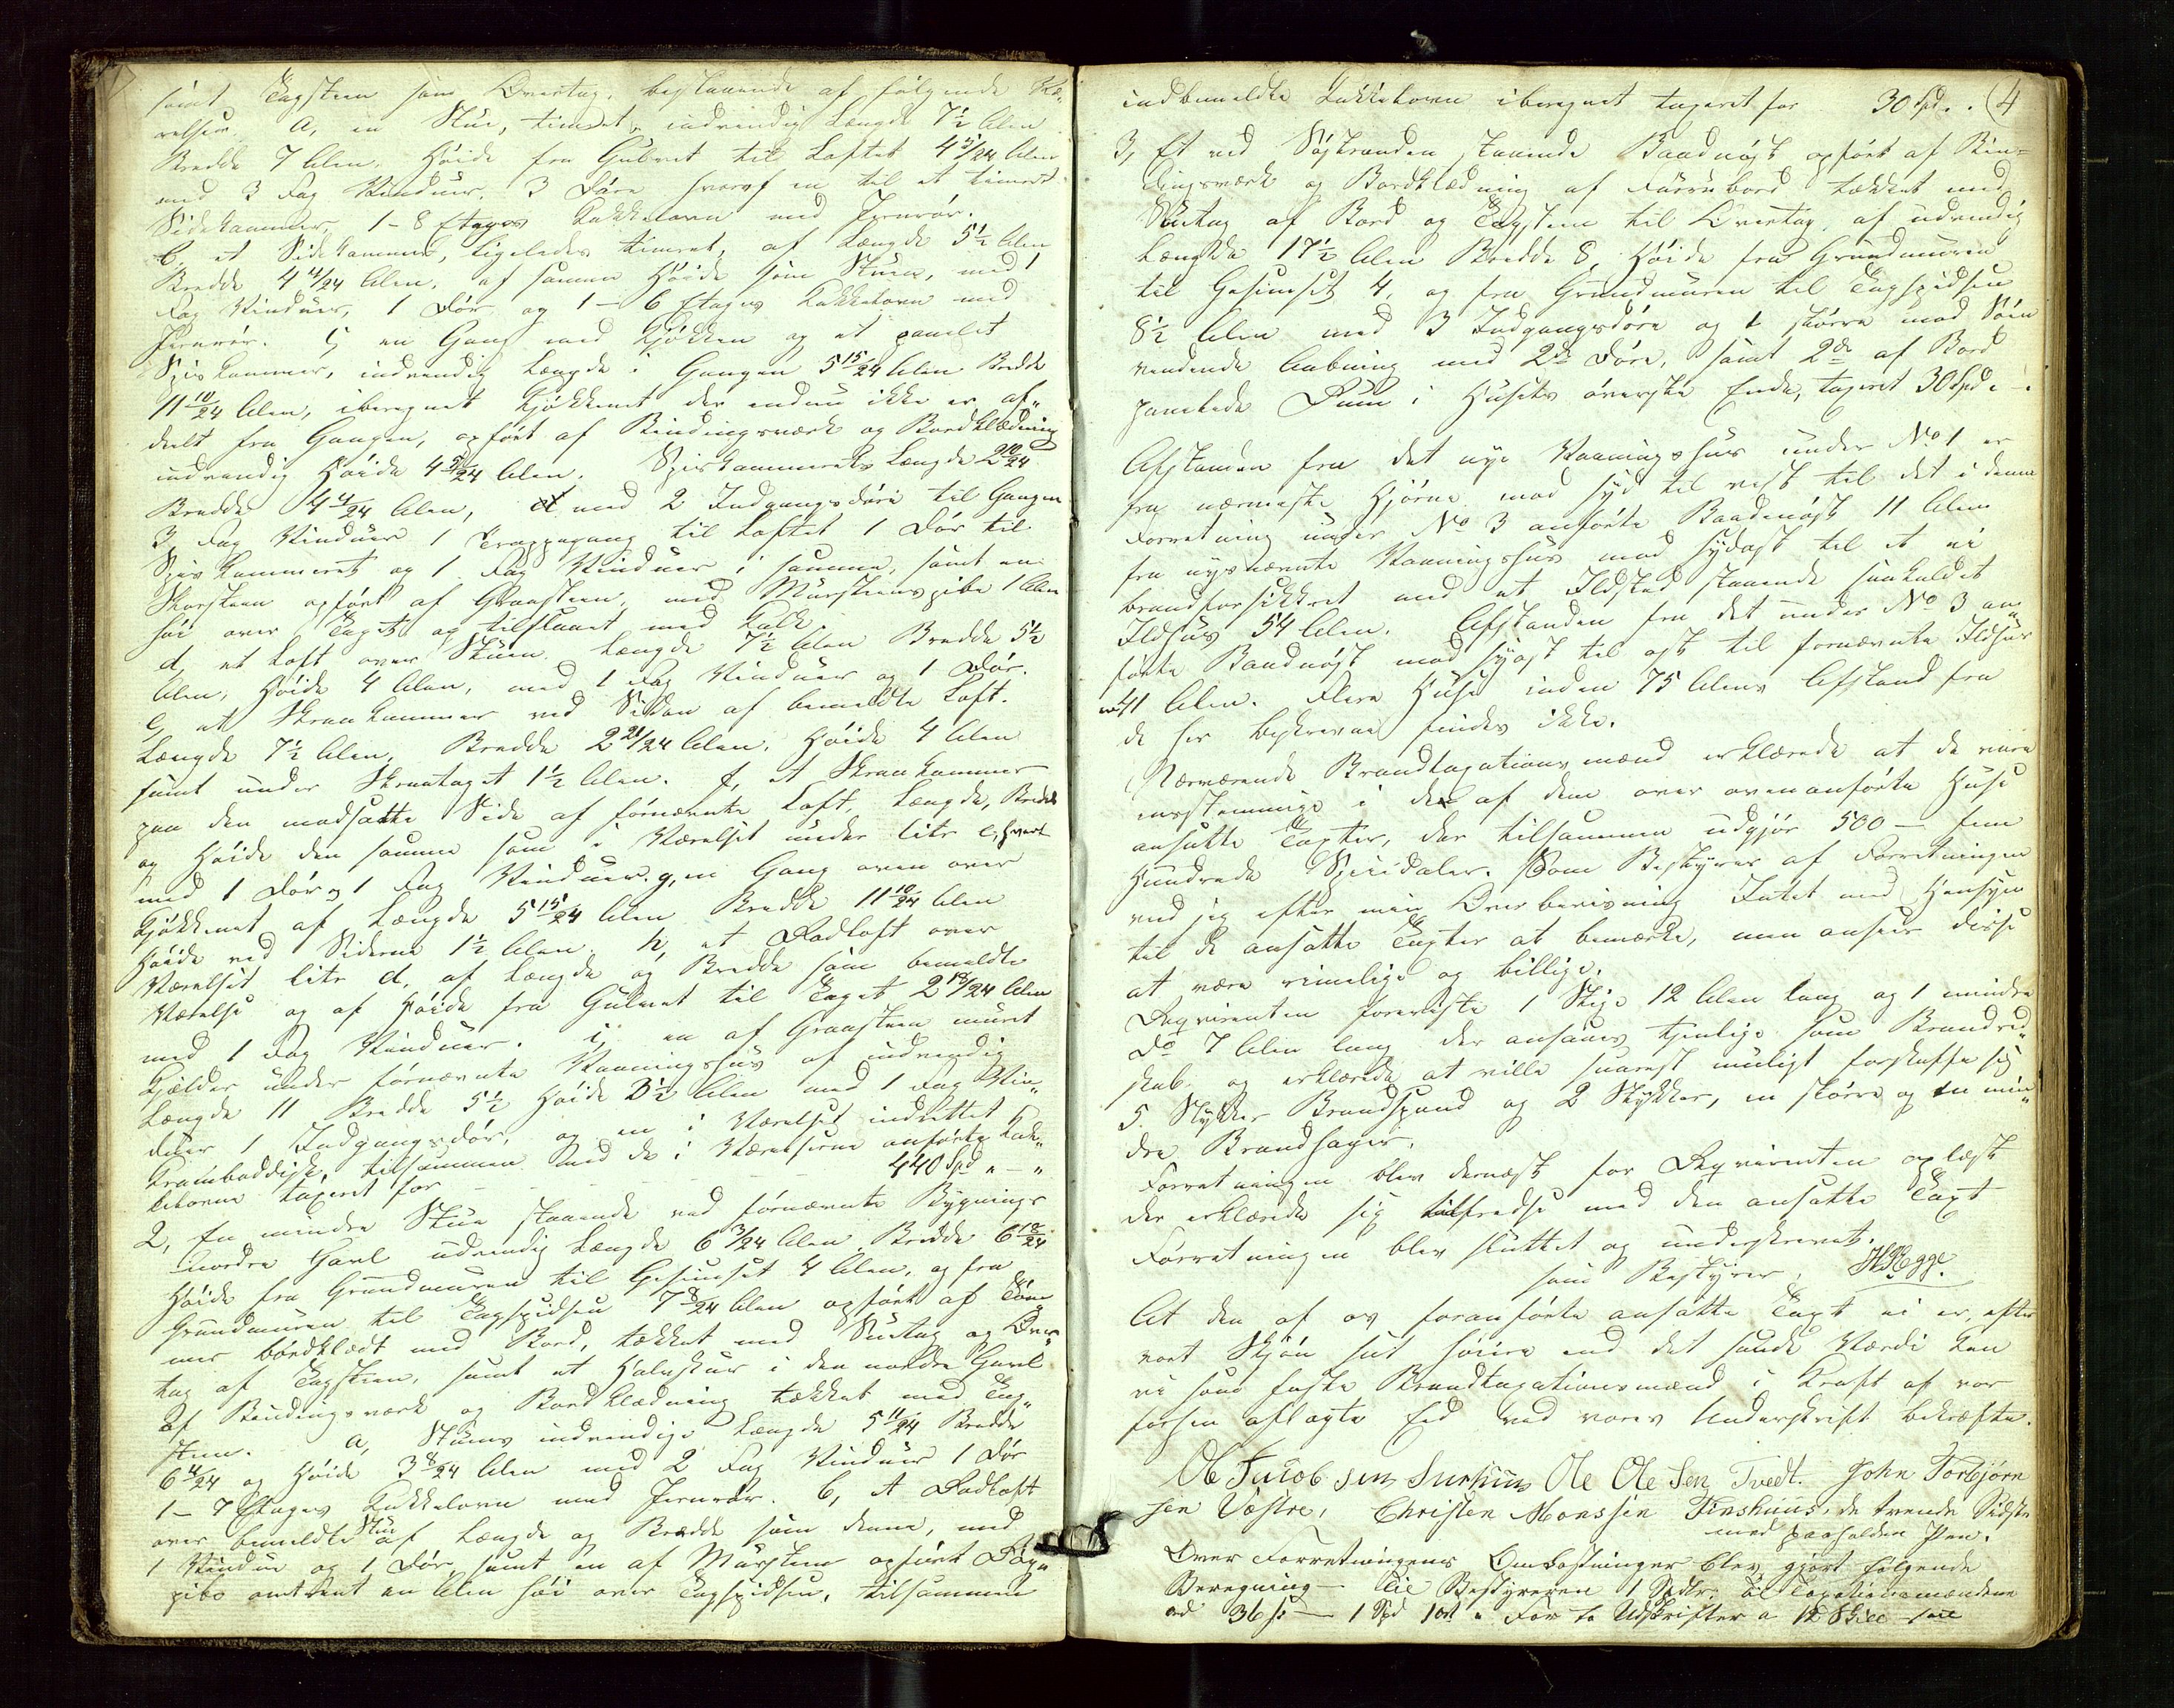 samt Tagsteen som Overtag, bestaaende af følgende Væ-
relser. a, en Stue, tømret, indvendig Længde 7½ Alen
Bredde 7 Alen, Høide fra Gulvet til Loftet 4 5/24 Alen
med 3 Fag Vinduer, 3 Døre hvoraf en til et tømret
Sidekammer, 1 - 8 Etages Kakkelovn med Jernrør.
b, et Sidekammer, ligeledes tømret, af Længde 5½ Alen
Bredde 4 4/24 Alen, af samme Høide som Stuen, med 1
Fag Vinduer, 1 Dør og 1 - 6 Etages Kakkelovn med
Jernrør. c, en Gang med Kjøkken og et panelet
Spiskammer, indvendig Længde i Gangen 5 15/24 Alen Bredde
11 10/24 Alen, iberegnet Kjøkkenet der endnu ikke er af-
deelt fra Gangen, opført af Bindingsværk og Bordklædning
indvendig Høide 4 5/24 Alen. Spiskammerets Længde 2 20/24
Bredde 4 4/24 Alen, med 2 Indgangsdøre til Gangen
3 Fag Vinduer 1 Trappegang til Loftet 1 Dør til
Spiskammeret og 1 Fag Vinduer i samme, samt en
Skorsteen opført af Graasteen, med Mursteenspibe 1 Alen
høi over Taget og tilslaaet med Kalk.
d, et Loft over Stuen Længde 7½ Alen Bredde 5½
Alen, Høide 4 Alen, med 1 Fag Vinduer og 1 Dør.
e, et Skraakammer ved Siden af bemeldte Loft.
Længde 7½ Alen, Bredde 2 21/24 Alen. Høide 4 Alen
samt under Skraataget 1½ Alen. f, et Skraakammer
paa den modsatte Side af fornævnte Loft, Længde, Bredde
og Høide den samme som i Værelset under litr e, hvert
med 1 Dør og 1 Fag Vinduer. g, en Gang oven over
Kjøkkenet af Længde 5 15/24 Alen Bredde 11 10/24 Alen
Høide ved Siderne 1½ Alen. h, et Rodloft over
Værelset litr d, af Længde og Bredde som bemeldte
Værelse og af Høide fra Gulvet til Taget 2 18/24 Alen
med 1 Fag Vinduer. i, en af Graasteen muret
Kjælder under fornævnte Vaaningshus af indvendig
Længde 11 Bredde 5½ Høide 3½ Alen med 1 Fag Vin-
duer 1 Indgangsdør, og en i Værelset indrettet
Krambeddisk, tilsammen med de i Værelserne anførte Kak-
kelovne taxeret for - - - - 440 Spd „ - „
2, En mindre Stue staaende ved fornævnte Bygnings
nordre Gavl udvendig Længde 6 3/24 Alen Bredde 6 18/24
Høide fra Grundmuren til Gesimset 4 Alen, og fra
Grundmuren til Tagspidsen 7 8/24 Alen opført af Tøm-
mer bordklædt med Bord, tækket med Sutag og Over-
tag af Tagsteen, samt et Halvskur i den nordre Gavl
af Bindingsværk og Bordklædning tækket med Tag-
steen. a, Stuens indvendige Længde 5 11/24 Bredde
6 4/24 og Høide 3 8/24 Alen med 2 Fag Vinduer 1 Dør
1 - 7 Etages Kakkelovn med Jernrør. b, et Rodloft
over bemeldte Stue af Længde og Bredde som denne, med
1 Vindue og 1 Dør, samt en af Mursteen opført Røg-
pibe omtrent en Alen høi over Tagspidsen, tilsammen
indbemeldte Kakkelovn iberegnet taxeret for 30 Spd. „ 4
3, Et ved Søstranden staaende Baadnøst opført af Bin-
dingsværk og Bordklædning af Furrubord tækket med
Sutag af Bord og Tagsteen til Overtag, af udvendig
Længde 17½ Alen Bredde 8, Høide fra Grundmuren
til Gesimset 4, og fra Grundmuren til Tagspidsen
8½ Alen med 3 Indgangsdøre og 1 større mod Søen
vendende Aabning med 2de Døre, samt 2de af Bord
panelede Rum i Husets øverste Ende, taxeret 30 Spd „ - „
Afstanden fra det nye Vaaningshus under No 1 er
fra nærmeste Hjørne mod syd til vest til det i denne
Forretning under No 3 anførte Baadenøst 11 Alen
fra nysnævnte Vaaningshus mod sydost til et ei
brandforsikkret med et Ildsted staaende saakaldet
Ildhus 54 Alen. Afstanden fra det under No 3 an-
førte Baadnøst mod syost til ost til fornævnte Ildhus
er 41 Alen. Flere Huse inden 75 Alens Afstand fra
de her beskrevne findes ikke.
Nærværende Brandtaxationsmænd erklærede at de vare
eenstemmige i de af dem over ovenanførte Huse
ansatte Taxter, der tilsammen udgjør 500 - fem
Hundrede Speciedaler. Som Bestyrer af Forretningen
ved jeg efter min Overbeviisning Intet med Hensyn
til de ansatte Taxter at bemærke, men anseer disse
at være rimelige og billige.
Reqvirenten foreviste 1 Stige 12 Alen lang og 1 mindre
Do 7 Alen lang der ansaaes tjenlige som Brandred-
skab og erklærede at ville snarest muligt forskaffe sig
5 Stykker Brandspand og 2 Stykker, en større og en min-
dre Brandhager.
Forretningen blev dernæst for Reqvirenten oplæst
der erklærede sig tilfreds med den ansatte Taxt
Forretningen blev sluttet og underskrevet.
som Bestyrer, HHegge
At den af os foranførte ansatte Taxt ei er, efter
vort Skjøn sat høiere end det sande Værdi kan
vi som faste Brandtaxationsmænd i Kraft af vor
forhen aflagte Eed ved vores Underskrift bekræfte.
Ole Jacob sen Ole Ole Sen Tvedt. John Torbjørn
sen Væstre, Christen Monssen Finshuus, de tvende Sidste
med paaholden Pen.
Over Forretningens Omkostninger blev gjort følgende
Beregning - Til Bestyreren 1 Spdlr. til Taxationsmændene
ad 36 s - 1 Spd 1 ort „ For to Udskrifter a 12 Skill